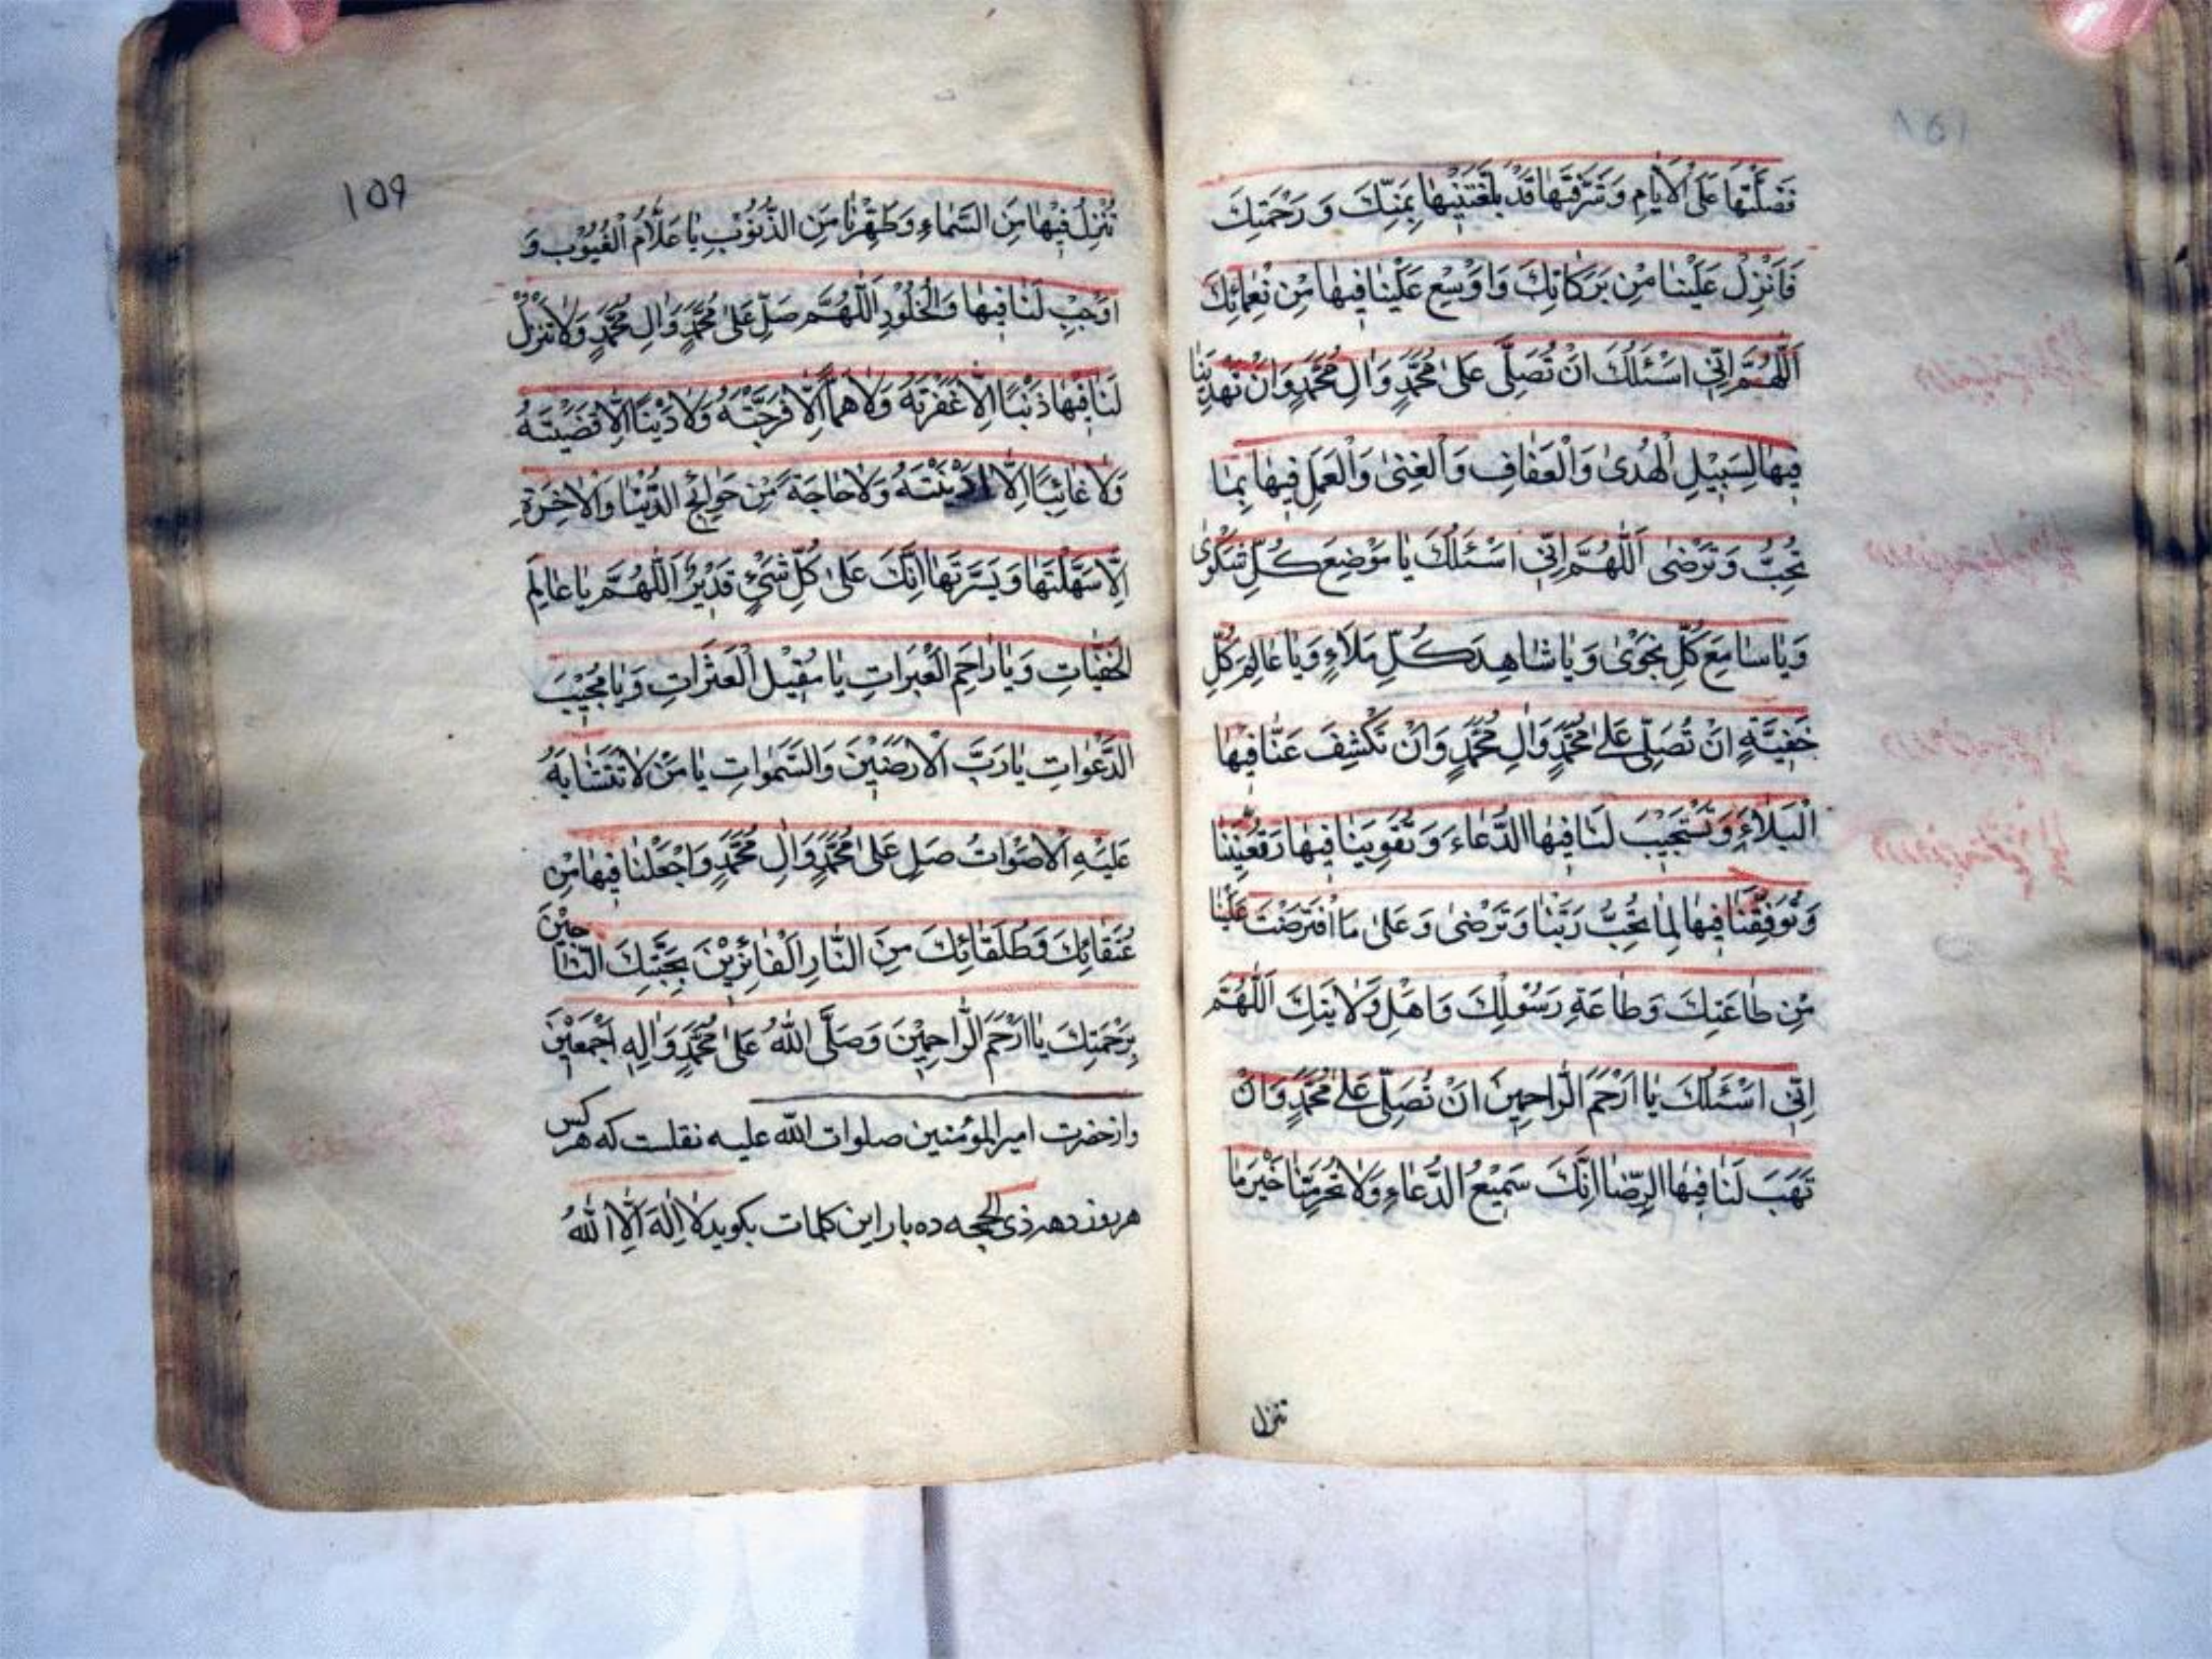 فَضَّلْتَهَا عَلَى الْاَيَّامِ وَشَرَّفْتَهَا قَدْ بَلَّغْتَنِيْهَا بِمَنِّكَ وَ رَحْمَتِكَ
فَاَنْزِلْ عَلَيْنَا مِنْ بَرَكَاتِكَ وَ اَوْسِعْ عَلَيْنَا فِيهَا مِنْ نَعْمَائِكَ
اَللّٰهُمَّ اِنّي اَسْئَلُكَ اَنْ تُصَلِّيَ عَلىٰ مُحَمَّدٍ وَ الِ مُحَمَّدٍ وَ اَنْ تَهْدِيَنَا
فِيهَا لِسَبِيْلِ الْهُدىٰ وَ الْعَفَافِ وَ الْغِنىٰ وَ الْعَمَلِ فِيهَا بِمَا
تُحِبُّ وَ تَرْضىٰ اَللّٰهُمَّ اِنّي اَسْئَلُكَ يَا مَوْضِعَ كُلِّ شَكْوىٰ
وَ يَا سَامِعَ كُلِّ نَجْوىٰ وَ يَا شَاهِدَ كُلِّ مَلَاءٍ وَ يَا عَالِمَ كُلِّ
خَفِيَّةٍ اَنْ تُصَلِّيَ عَلىٰ مُحَمَّدٍ وَ الِ مُحَمَّدٍ وَ اَنْ تَكْشِفَ عَنَّا فِيْهَا
الْبَلَاءَ وَ تَسْتَجِيْبَ لَنَا فِيْهَا الدُّعَاءَ وَ تُقَوِّيَنَا فِيهَا وَ تُعِيْنَنَا
وَ تُوَفِّقَنَا فِيهَا لِمَا تُحِبُّ رَبَّنَا وَ تَرْضىٰ وَ عَلىٰ مَا افْتَرَضْتَ عَلَيْنَا
مِنْ طَاعَتِكَ وَ طَاعَةِ رَسُوْلِكَ وَ اَهْلِ وَلَايَتِكَ اَللّٰهُمَّ
اِنّي اَسْئَلُكَ يَا اَرْحَمَ الرَّاحِمِيْنَ اَنْ تُصَلِّيَ عَلىٰ مُحَمَّدٍ وَ اَنْ
تَهَبَ لَنَا فِيْهَا الرِّضَا اِنَّكَ سَمِيْعُ الدُّعَاءِ وَ لَا تَحْرِمْنَا خَيْرَ مَا
تنزل
۱۵۹
تُنْزِلُ فِيْهَا مِنَ السَّمَاءِ وَ طَهِّرْنَا مِنَ الذُّنُوْبِ يَا عَلَّامَ الْغُيُوْبِ وَ
اَوْجِبْ لَنَا فِيهَا وَ الْخُلُوْدِ اَللّٰهُمَّ صَلِّ عَلىٰ مُحَمَّدٍ وَ الِ مُحَمَّدٍ وَ لَا تَنْزِلْ
لَنَا فِيْهَا ذَنْبًا اِلَّا غَفَرْتَهُ وَ لَا هَمًّا اِلَّا فَرَّجْتَهُ وَ لَا دَيْنًا اِلَّا قَضَيْتَهُ
وَ لَا غَائِبًا اِلَّا اَدْنَيْتَهُ وَ لَا حَاجَةً مِنْ حَوَائِجِ الدُّنْيَا وَ الْاٰخِرَةِ
اِلَّا سَهَّلْتَهَا وَ يَسَّرْتَهَا اِنَّكَ عَلىٰ كُلِّ شَيْءٍ قَدِيْرٌ اَللّٰهُمَّ يَا عَالِمَ
الْخَفِيَّاتِ وَ يَا رَاحِمَ الْعَبَرَاتِ يَا مُقِيْلَ الْعَثَرَاتِ وَ يَا مُجِيْبَ
الدَّعَوَاتِ يَا رَبَّ الْاَرَضِيْنَ وَ السَّمٰوَاتِ يَا مَنْ لَا تَتَشَابَهُ
عَلَيْهِ الْاَصْوَاتُ صَلِّ عَلىٰ مُحَمَّدٍ وَ الِ مُحَمَّدٍ وَ اجْعَلْنَا فِيهَا مِنْ
عُتَقَائِكَ وَ طُلَقَائِكَ مِنَ النَّارِ الْفَائِزِيْنَ بِجَنَّتِكَ النَّاجِيْنَ
بِرَحْمَتِكَ يَا اَرْحَمَ الرَّاحِمِيْنَ وَ صَلَّى اللّٰهُ عَلىٰ مُحَمَّدٍ وَ اٰلِهِ اَجْمَعِيْنَ
و از حضرت امیر المؤمنین صلوات الله علیه نقلست که هر کس
هر روز دهه ذی الحجه ده بار این کلمات بکوید لَا اِلٰهَ اِلَّا اللّٰهُ